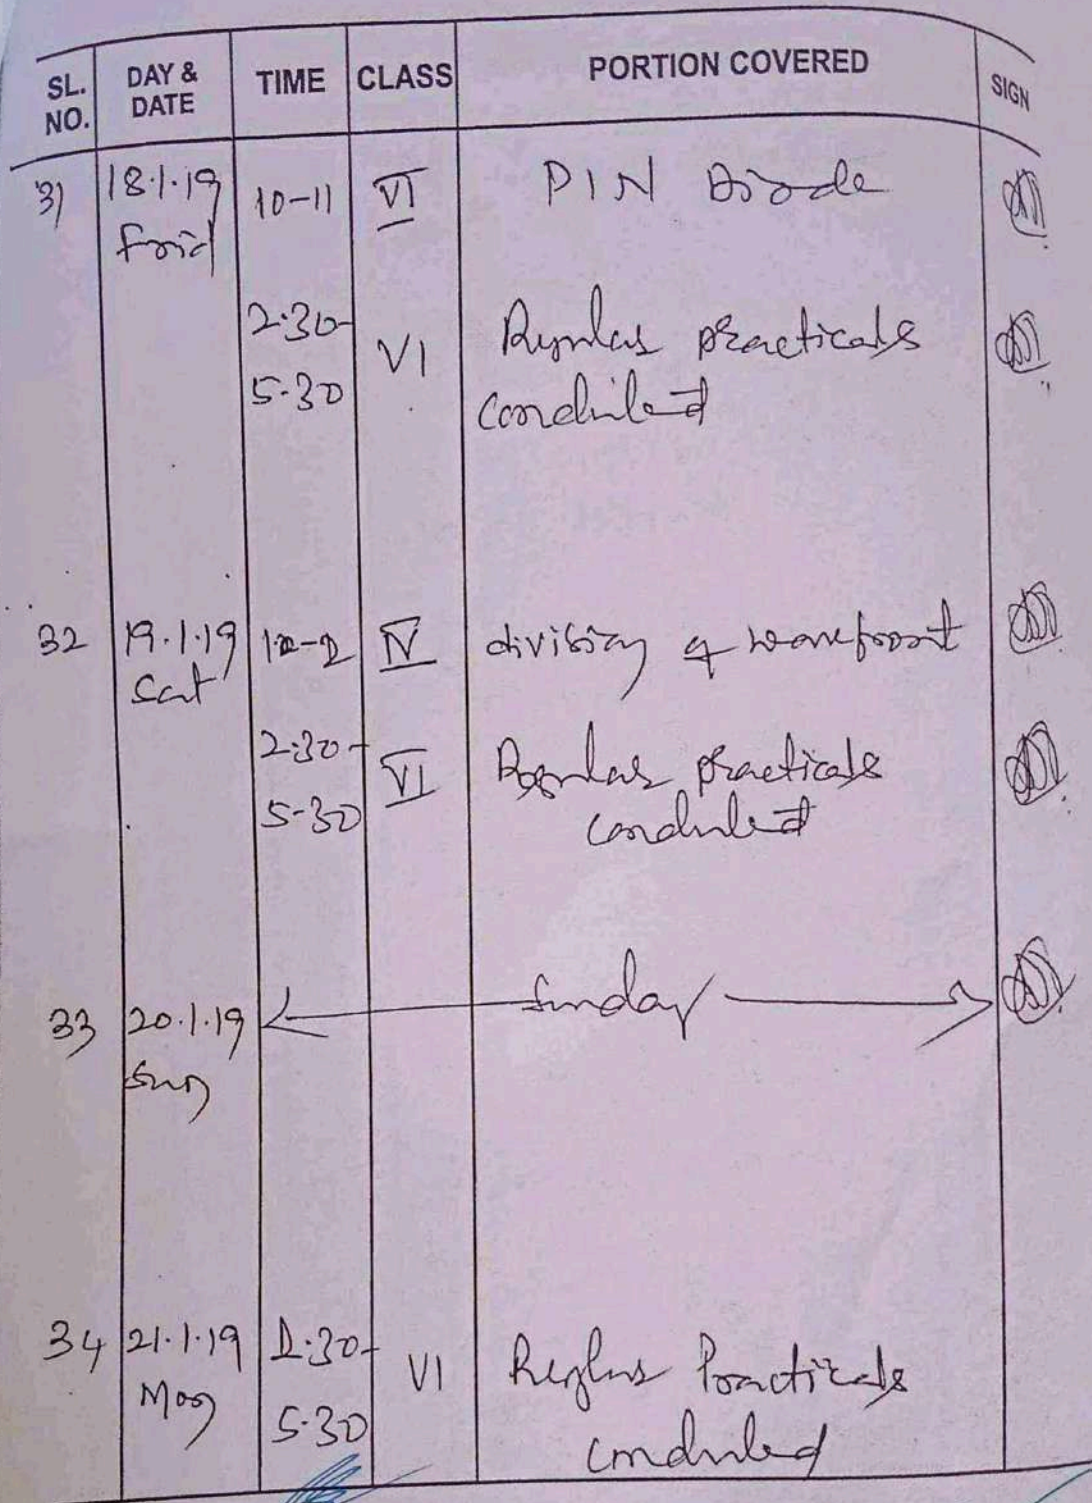 SL. NO. DAY & DATE TIME CLASS PORTION COVERED SIGN
31 18.1.19 10-11 VI PIN Diode
Frid
2.30- VI Regular practicals
5.30 conducted
32 19.1.19 IV division of wavefront
Sat
2.30- VI Regular practicals
5-30 conducted
33 20.1.19 Sunday
Sun
34 21.1.19 2.30- VI Regular Practicals
Mon 5.30 conducted